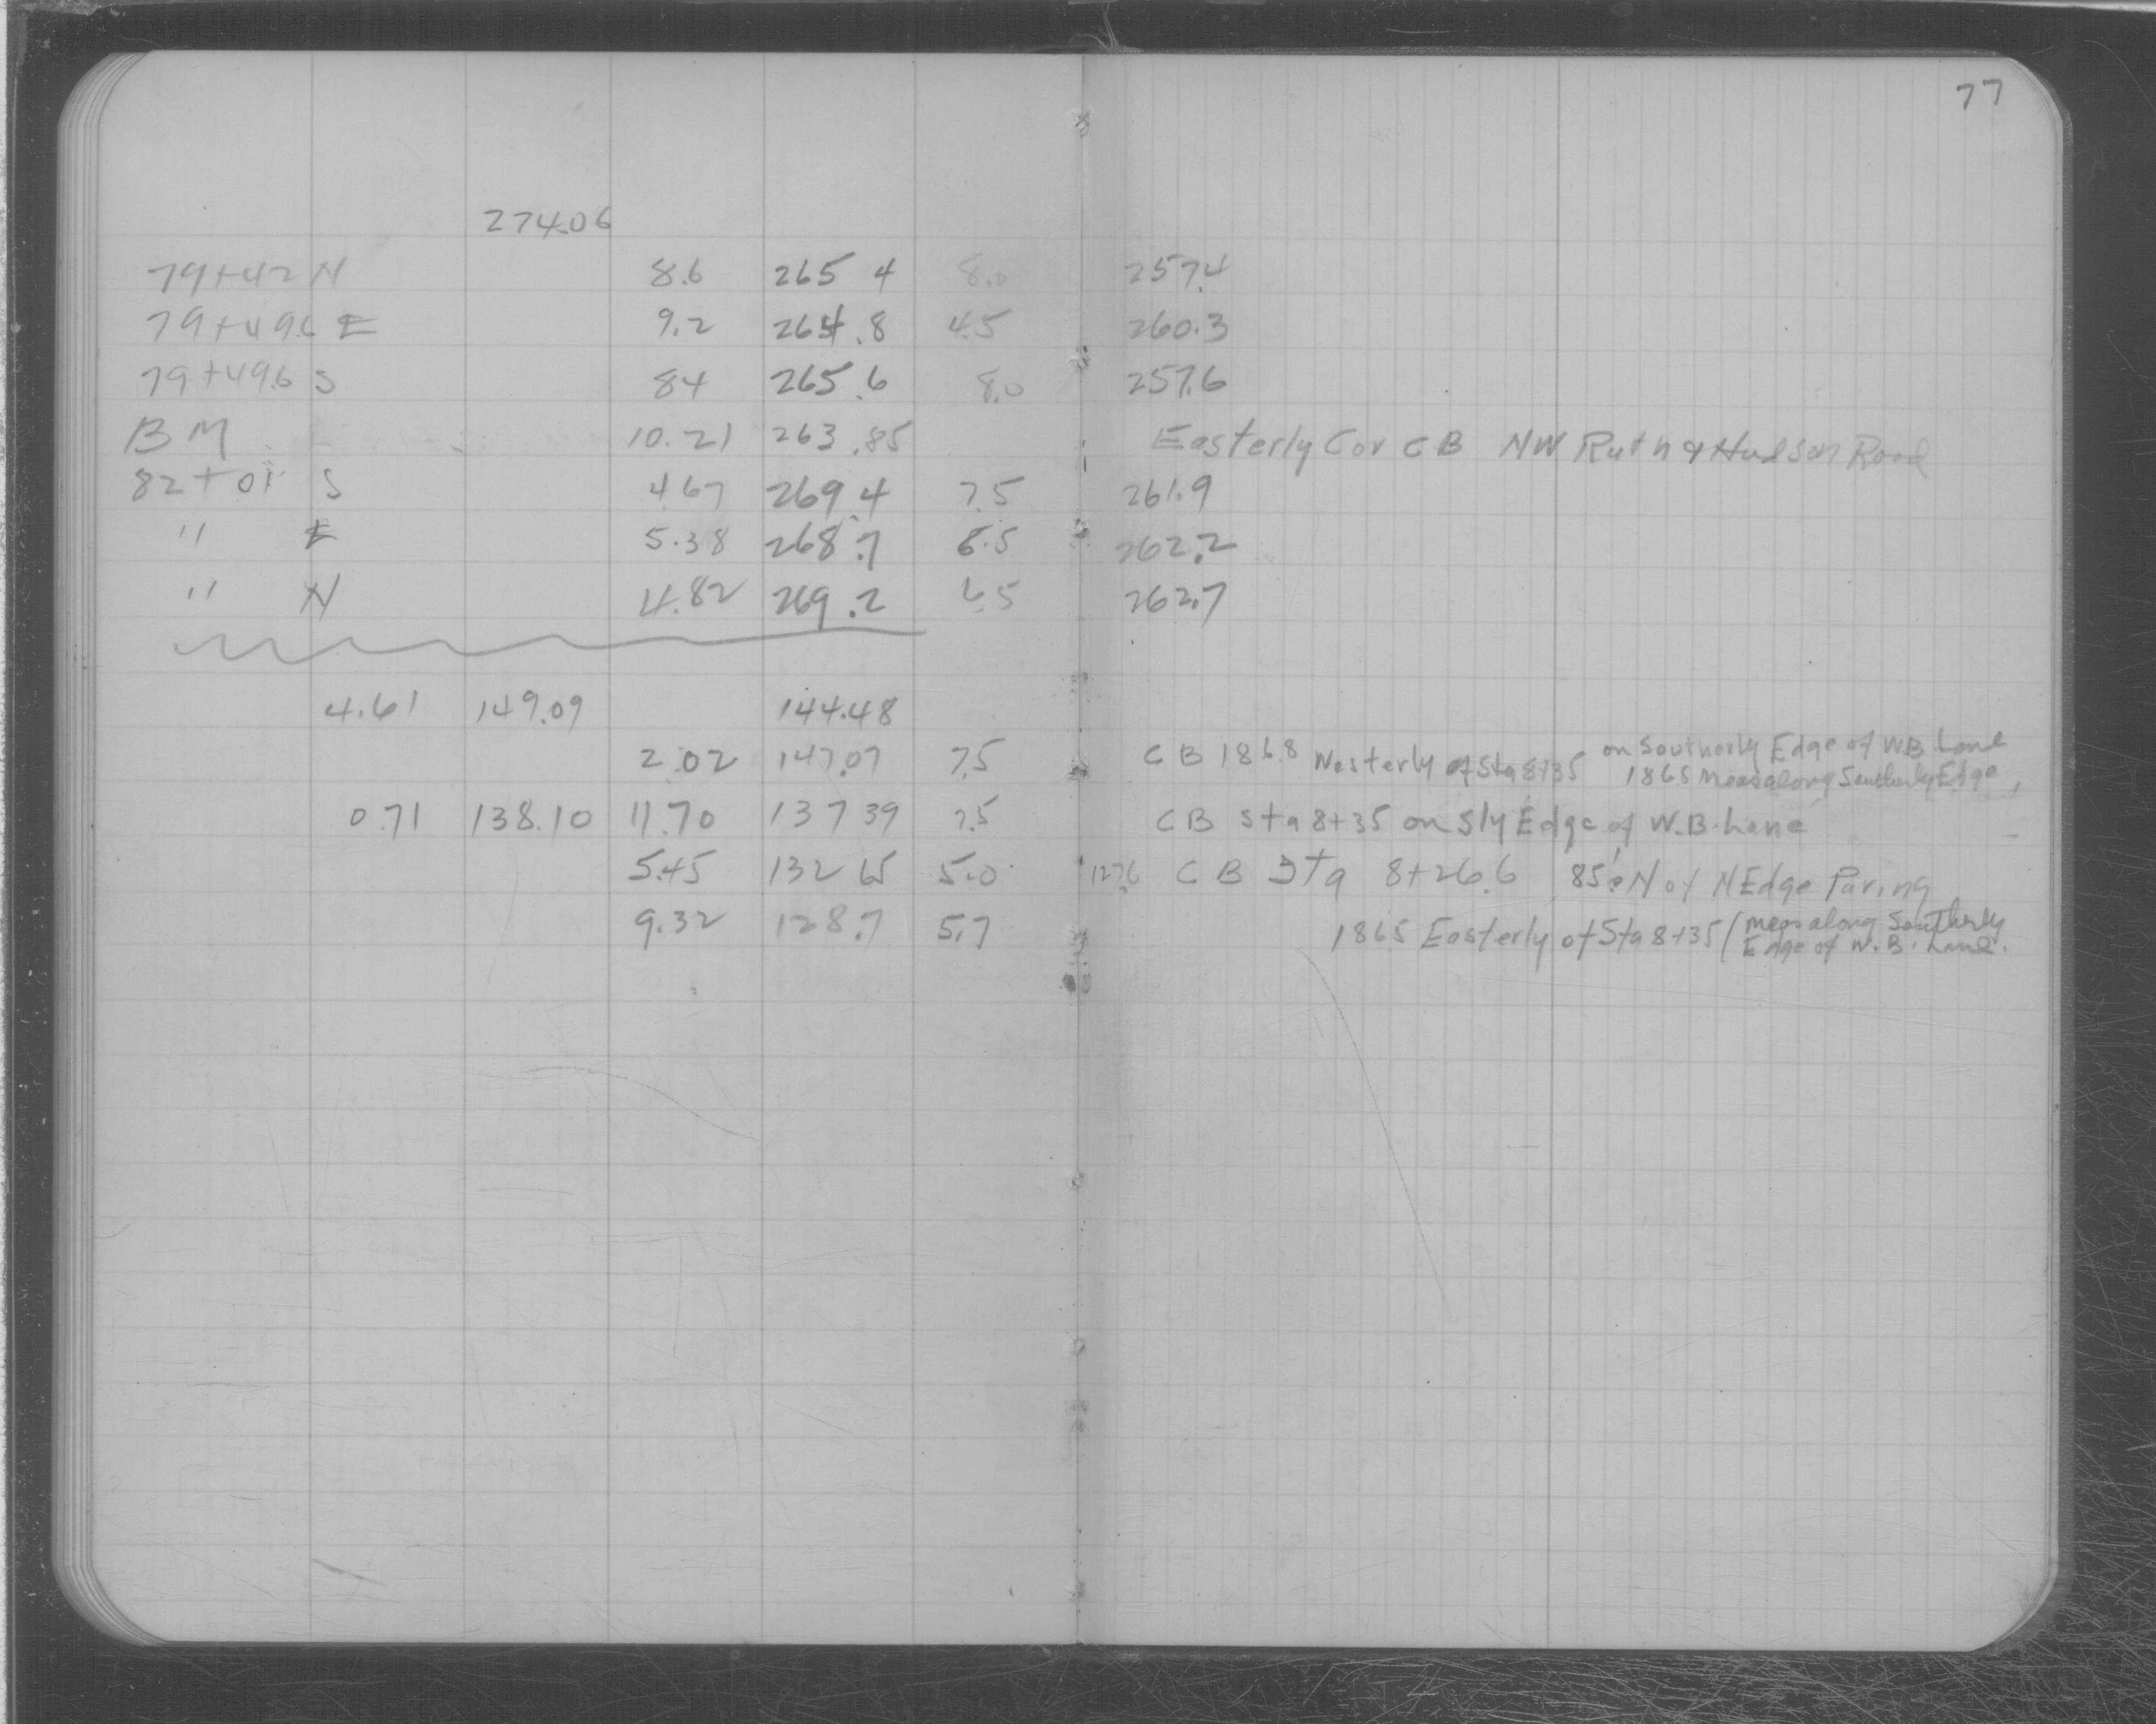 77
274.06
79+42 N 8.6 265 4 8.0 257.4
79+49.6 E 9.2 264.8 4.5 260.3
79+49.6 S 84 265.6 8.0 257.6
BM 10.21 263.85 Easterly Cor CB NW Ruth & Hudson Road
82+01 S 4.67 269 4 7.5 261.9
" E 5.38 268.7 6.5 262.2
" N 4.82 269.2 6.5 262.7
4.61 149.09 144.48
2.02 147.07 7.5 CB 186.8 Westerly of Sta 8+35 on Southerly Edge of W.B. Lane
186.5 Meas along Southerly Edge
0.71 138.10 11.70 137 39 7.5 CB Sta 8+35 on Sly Edge of W.B. Lane
5.45 132 65 5.0 127.6 CB Sta 8+26.6 85' N of N Edge Paving
9.32 128.7 5.7 186.5 Easterly of Sta 8+35 (meas along Southerly
Edge of W.B. Lane.